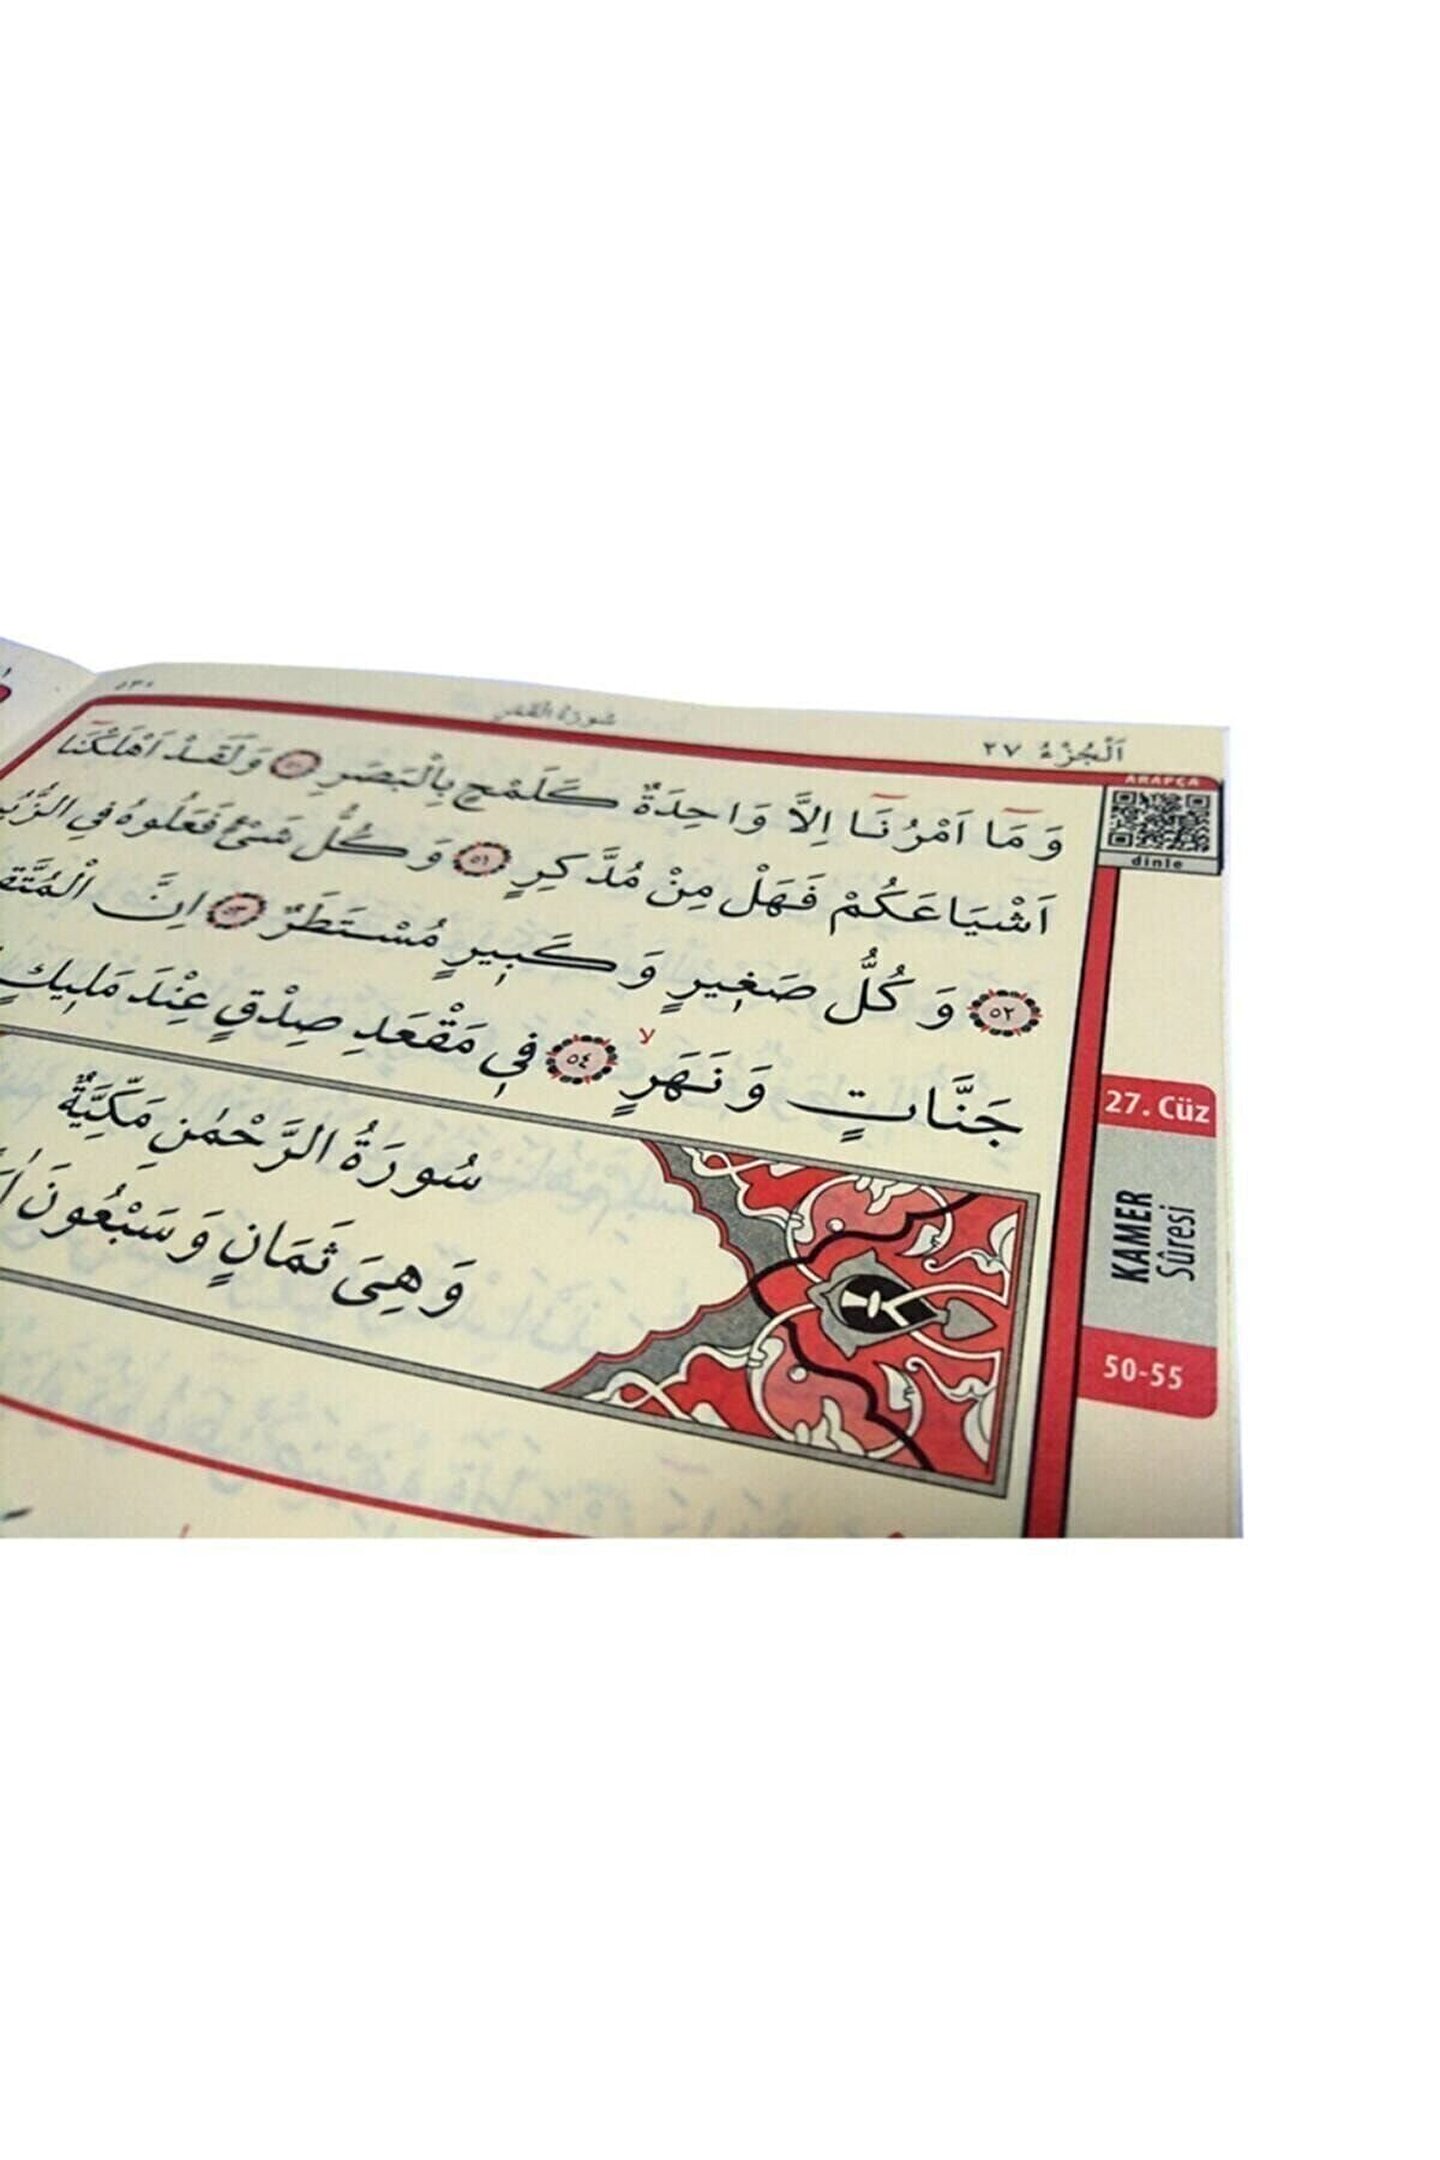 ٥٣٠
سُورَةُ الْقَمَرِ
اَلْجُزْءُ ٢٧
وَمَٓا اَمْرُنَٓا اِلَّا وَاحِدَةٌ كَلَمْحٍ بِالْبَصَرِ ٥٠ وَلَقَدْ اَهْلَكْنَٓا
اَشْيَاعَكُمْ فَهَلْ مِنْ مُدَّكِرٍ ٥١ وَكُلُّ شَىْءٍ فَعَلُوهُ فِي
وَكُلُّ صَغٖيرٍ وَكَبٖيرٍ مُسْتَطَرٌ ٥٣ اِنَّ
٥٢
جَنَّاتٍ وَنَهَرٍ لا ٥٤ فٖي مَقْعَدِ صِدْقٍ عِنْدَ
سُورَةُ الرَّحْمٰنِ مَكِّيَّةٌ
وَهِىَ ثَمَانٍ وَسَبْعُونَ
ARAPÇA
dinle
27. Cüz
KAMER
Sûresi
50-55